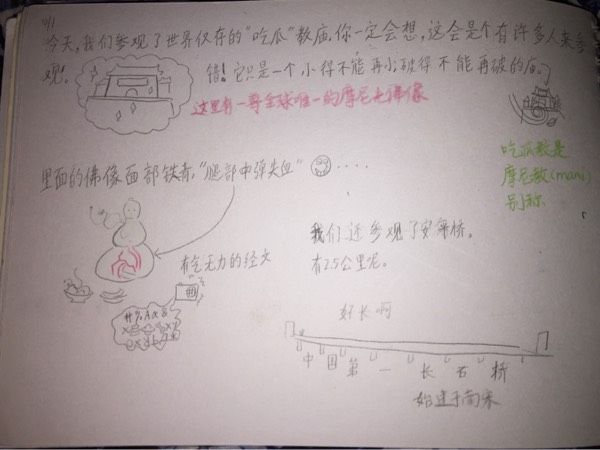 今天,我们参观了世界仅存的"吃瓜"教庙,你一定会想,这会是个有许多人来参
观!
错!它只是一个小得不能再小,破得不能再破的庙。
这里有一尊全球唯一的摩尼光佛像
吃瓜教是
摩尼教(mani)
别称
里面的佛像面部铁青,"腿部中弹失血"....
有气无力的经文
我们还参观了安平桥。
有2.5公里呢。
好长啊
中国第一长石桥
始建于南宋